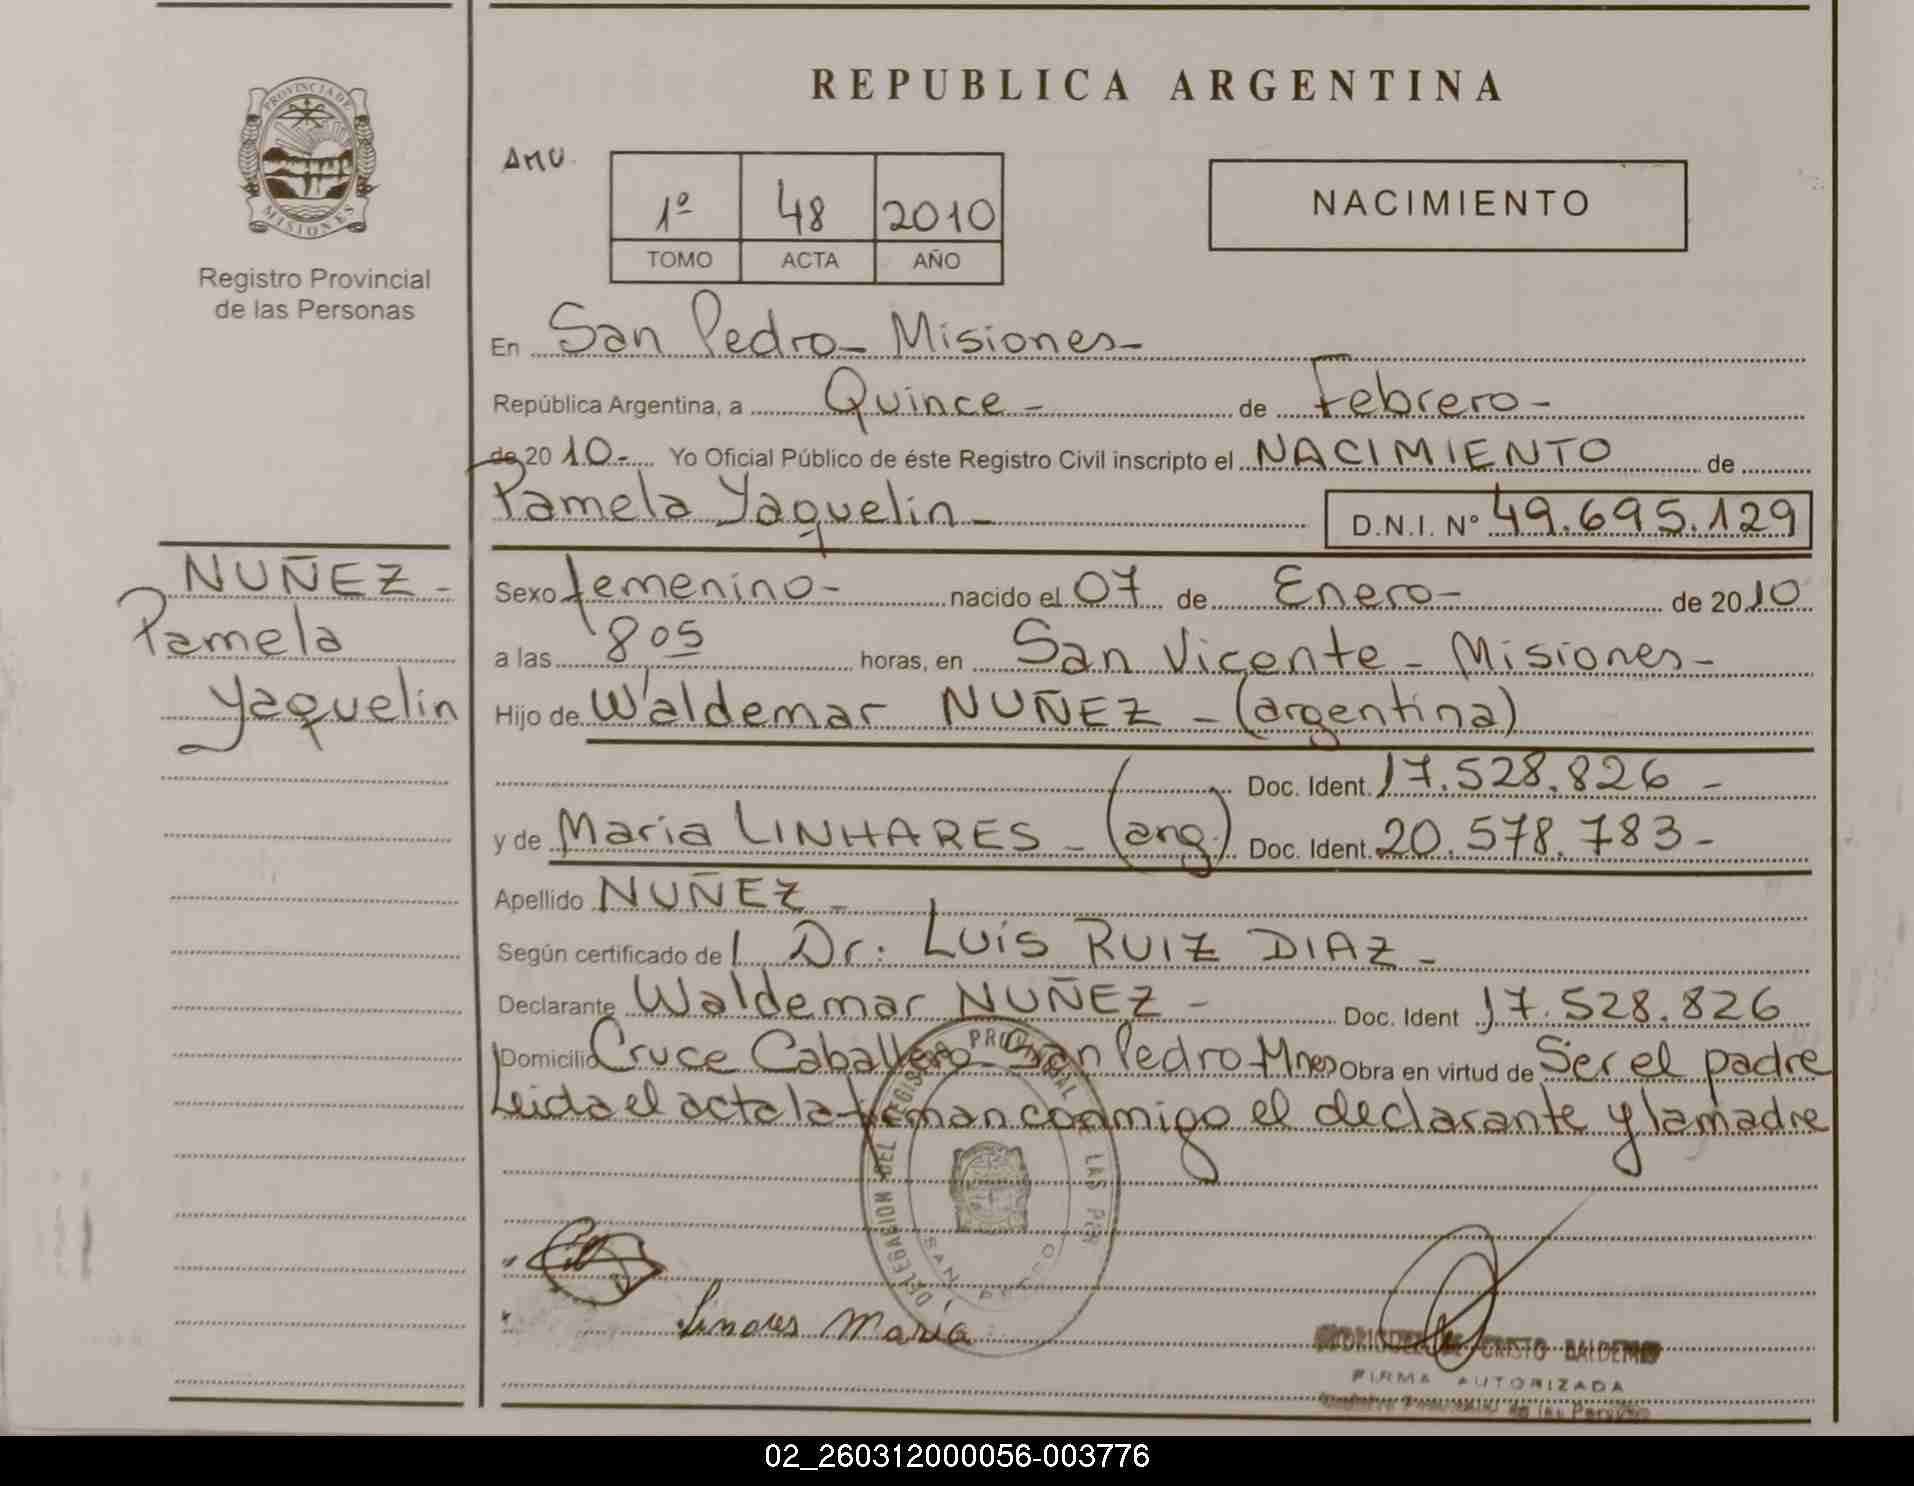 REPUBLICA ARGENTINA
PROVINCIA DE
MISIONES
Registro Provincial
de las Personas
AMU.
1º 48 2010
TOMO ACTA AÑO
NACIMIENTO
En San Pedro - Misiones -
República Argentina, a Quince - de Febrero -
de 20 10 - Yo Oficial Público de éste Registro Civil inscripto el NACIMIENTO de
Pamela Yaquelin - D.N.I. Nº 49.695.129
NUÑEZ -
Pamela
Yaquelin
Sexo femenino - nacido el 07 de Enero - de 20 10
a las 8 05 horas, en San Vicente - Misiones -
Hijo de Waldemar NUÑEZ - (argentina)
Doc. Ident. 17.528.826 -
y de Maria LINHARES - (arg.) Doc. Ident. 20.578.783 -
Apellido NUÑEZ -
Según certificado de l Dr: Luis RUIZ DIAZ -
Declarante Waldemar NUÑEZ - Doc. Ident 17.528.826
Domicilio Cruce Caballero - San Pedro - Mnes Obra en virtud de Ser el padre
Leida el acta la firman conmigo el declarante y la madre
DELEGACION DEL REGISTRO PROVINCIAL DE LAS PER
SAN PEDRO
Linares Maria
CRISTO BALDEMAR
FIRMA AUTORIZADA
de las Personas
02_260312000056-003776